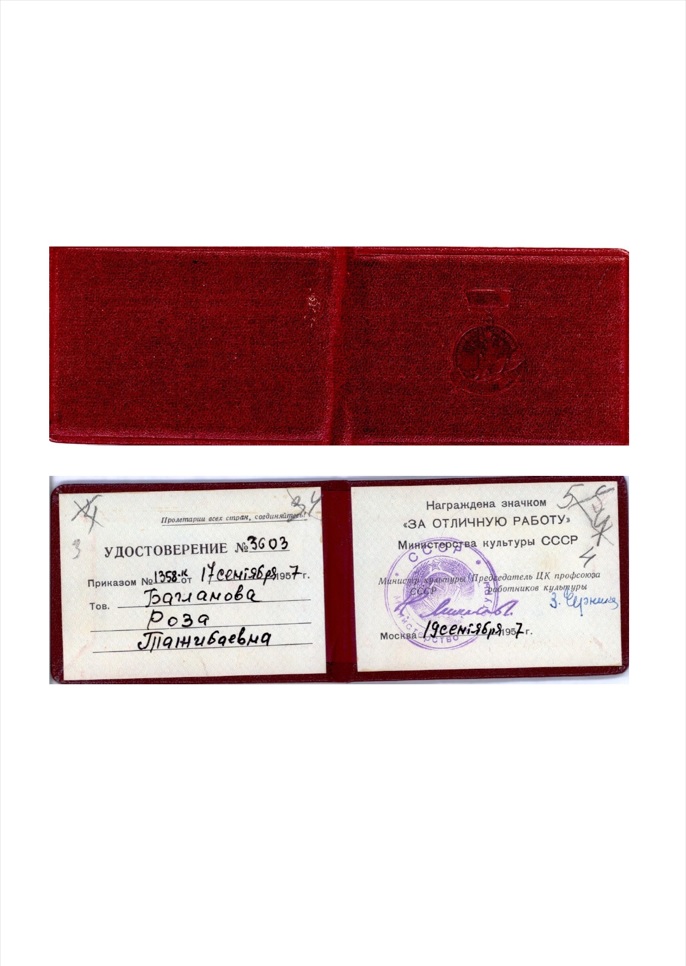 Пролетарии всех стран, соединяйтесь!
34
3
УДОСТОВЕРЕНИЕ №3603
Приказом №1358-к от 17 сентября 1957 г.
Тов. Багланова
Роза
Тажибаевна
Награждена значком
«ЗА ОТЛИЧНУЮ РАБОТУ»
Министерства культуры СССР
4
Министр культуры СССР
Председатель ЦК профсоюза работников культуры
СССР
МИНИСТЕРСТВО
Москва 19 сентября 1957 г.